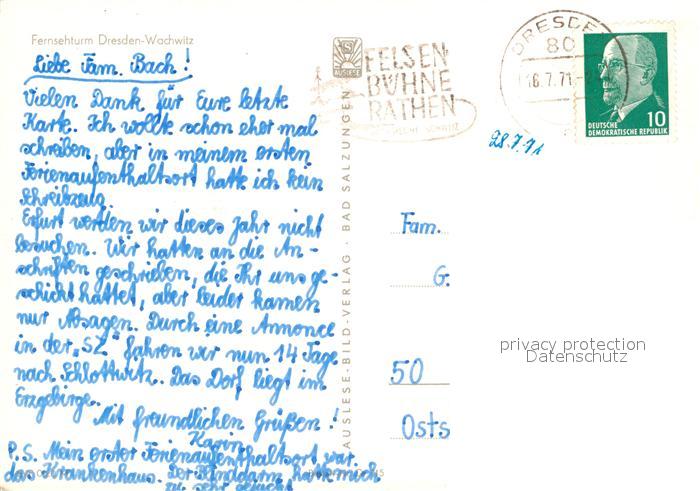 Fernsehturm Dresden-Wachwitz
Liebe Fam. Bach!
Vielen Dank für Eure letzte
Karte. Ich wollte schon eher mal
schreiben, aber in meinem ersten
Ferienaufenthaltsort hatte ich kein
Schreibzeug.
Erfurt werden wir dieses Jahr nicht
besuchen. Wir hatten an die An-
schriften geschrieben, die Ihr uns ge-
schickt hattet, aber leider kamen
nur Absagen. Durch eine Annonce
in der „SZ“ fahren wir nun 14 Tage
nach Schlottwitz. Das Dorf liegt im
Erzgebirge.
Mit freundlichen Grüßen!
Karin
P.S. Mein erster Ferienaufenthaltsort war
das Krankenhaus. Der Blinddarm hatte mich
zu sehr
AUSLESE-BILD-VERLAG · BAD SALZUNGEN
AUSLESE
FELSEN
BÜHNE
RATHEN
DRESDEN
80
16.7.71
DEUTSCHE
DEMOKRATISCHE REPUBLIK
10
28.7.71
Fam.
G.
50
Osts
privacy protection
Datenschutz